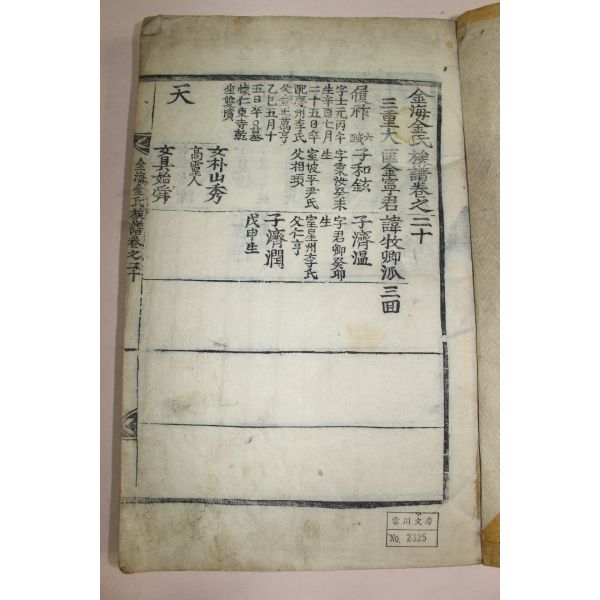 金海金氏族譜卷之三十
三重大匡金寧君諱牧卿派 三回
履祚
字士元丙午
生辛酉七月
二十五日卒
配慶州李氏
父
乙巳五月十
五日卒墓
懷仁東寺乾
坐雙墳
子和鉉
字
生
室坡平尹氏
父相頊
女朴山秀
高靈人
女具始舜
子濟溫
字君卿癸卯
生
室星州李氏
父仁亨
子濟潤
戊申生
天
金海金氏族譜卷之三十
雲川文庫
No. 2325